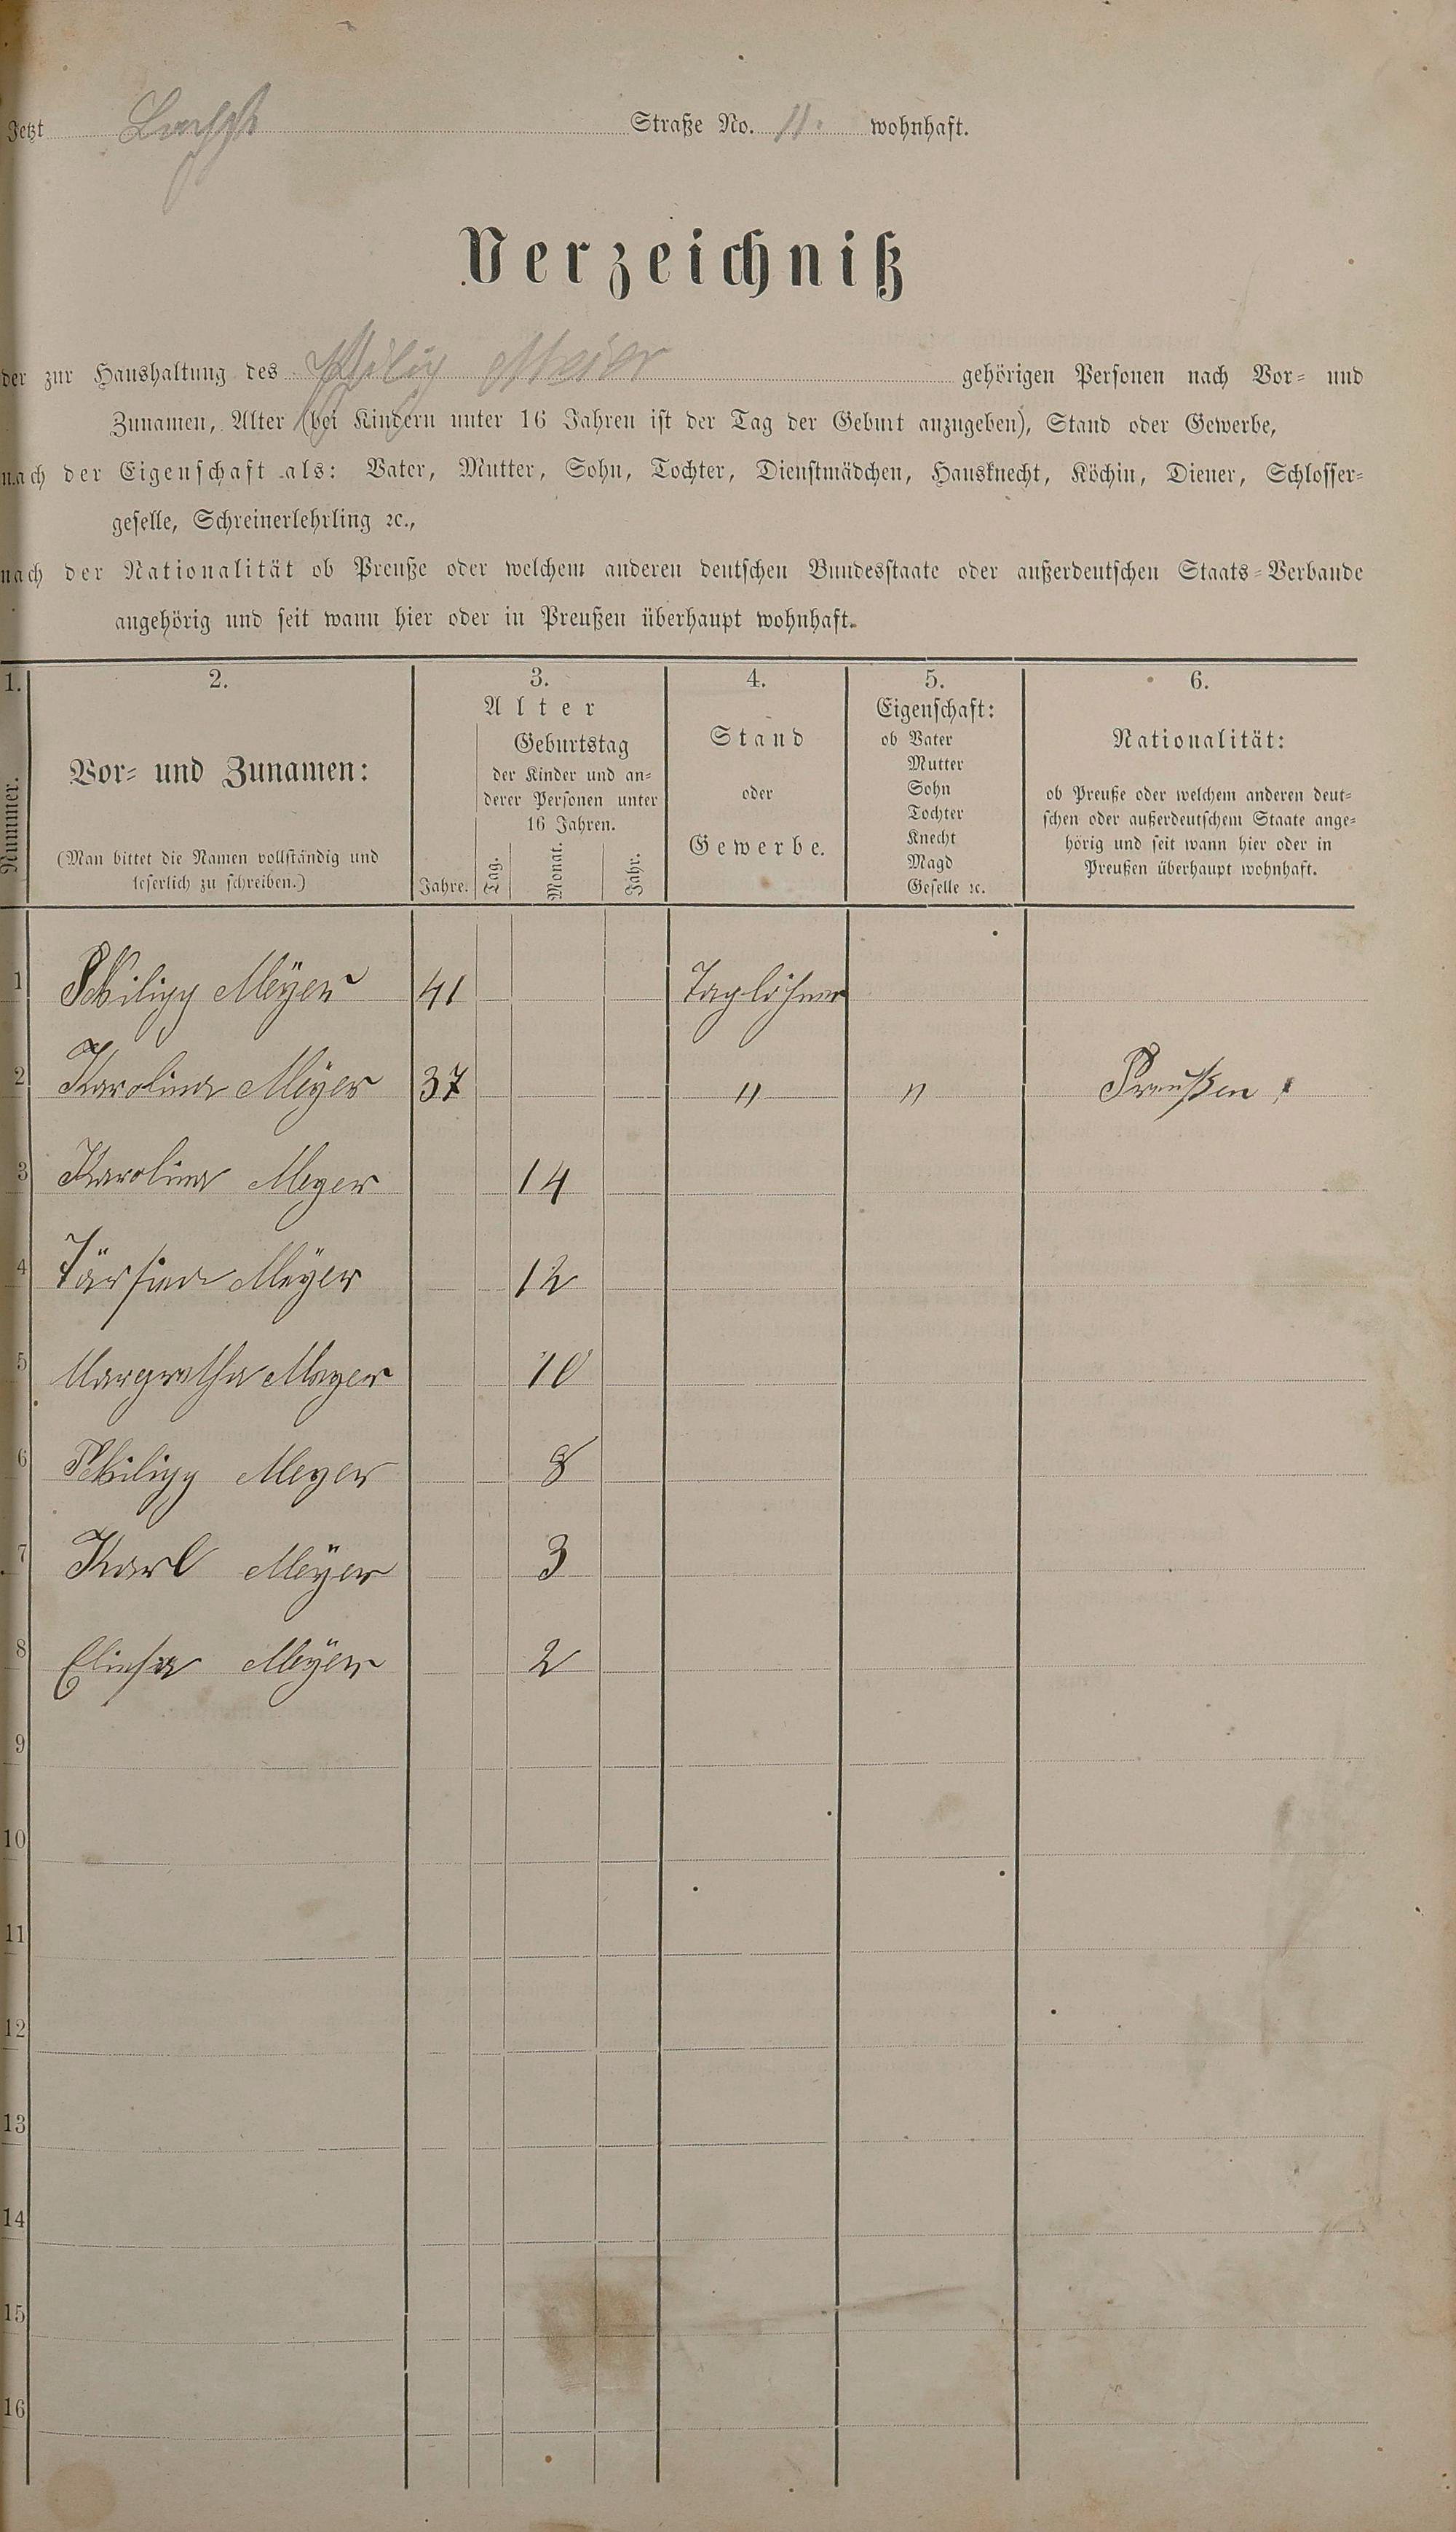 Jetzt Straße No. 11. wohnhaft.
Verzeichniß
der zur Haushaltung des Philipp Meier gehörigen Personen nach Vor- und
Zunamen, Alter (bei Kindern unter 16 Jahren ist der Tag der Geburt anzugeben), Stand oder Gewerbe,
nach der Eigenschaft als: Vater, Mutter, Sohn, Tochter, Dienstmädchen, Hausknecht, Köchin, Diener, Schlosser-
geselle, Schreinerlehrling ꝛc.,
nach der Nationalität ob Preuße oder welchem anderen deutschen Bundesstaate oder außerdeutschen Staats-Verbande
angehörig und seit wann hier oder in Preußen überhaupt wohnhaft.
1. 2. 3. 4. 5. 6.
Nummer.
Vor- und Zunamen:
(Man bittet die Namen vollständig und
leserlich zu schreiben.)
Alter
Jahre.
Geburtstag
der Kinder und an-
derer Personen unter
16 Jahren.
Tag. Monat. Jahr.
Stand
oder
Gewerbe.
Eigenschaft:
ob Vater
Mutter
Sohn
Tochter
Knecht
Magd
Geselle ꝛc.
Nationalität:
ob Preuße oder welchem anderen deut-
schen oder außerdeutschem Staate ange-
hörig und seit wann hier oder in
Preußen überhaupt wohnhaft.
1 Philipp Meÿer 41 Taglöhner
2 Karolina Meÿer 37 " " Preußen
3 Karolina Meyer 14
4 Meÿer 12
5 Margretha Meyer 10
6 Philipp Meyer 8
7 Karl Meÿer 3
8 Meÿer 2
9
10
11
12
13
14
15
16